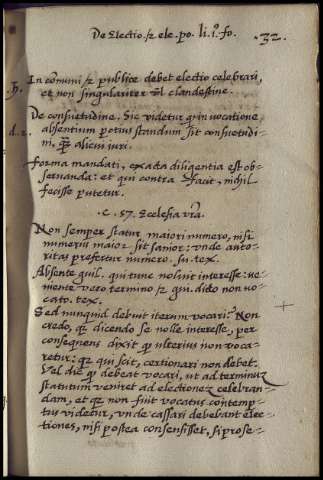 De Electio. & ele. po. li. i.° fo. 32.
h. In comuni & publice debet electio celebrari,
et non singulariter vel clandestine.
d. 2. De consuetudine. Sic videtur q in vocatione
absentium potius standum sit consuetudi-
ni, q̃ alicui iuri.
Forma mandati, exacta diligentia est ob-
servanda: et qui contra facit, nihil
fecisse putetur.
.C. 57. Ecclesia vr̃a.
Non semper statur maiori numero, nisi
numerus maior sit sanior: unde auto-
ritas prefertur numero. su. tex.
Absente guil. qui tunc noluit interesse: ve-
niente vero termino & gu. dicto non vo-
cato. tex.
Sed nunquid debuit iterum vocari: Non
credo, q̃ dicendo se nolle interesse, per
consequens dixit q ulterius non voca-
retur: q̃ qui scit, certiorari non debet.
Vel dic q debeat vocari, ut ad terminũ
statutum veniret ad electionẽ celebran-
dam, et q̃ non fuit vocatus contemp-
tus videtur, unde cassari debebant elec-
tiones, nisi postea consensisset, si prose-